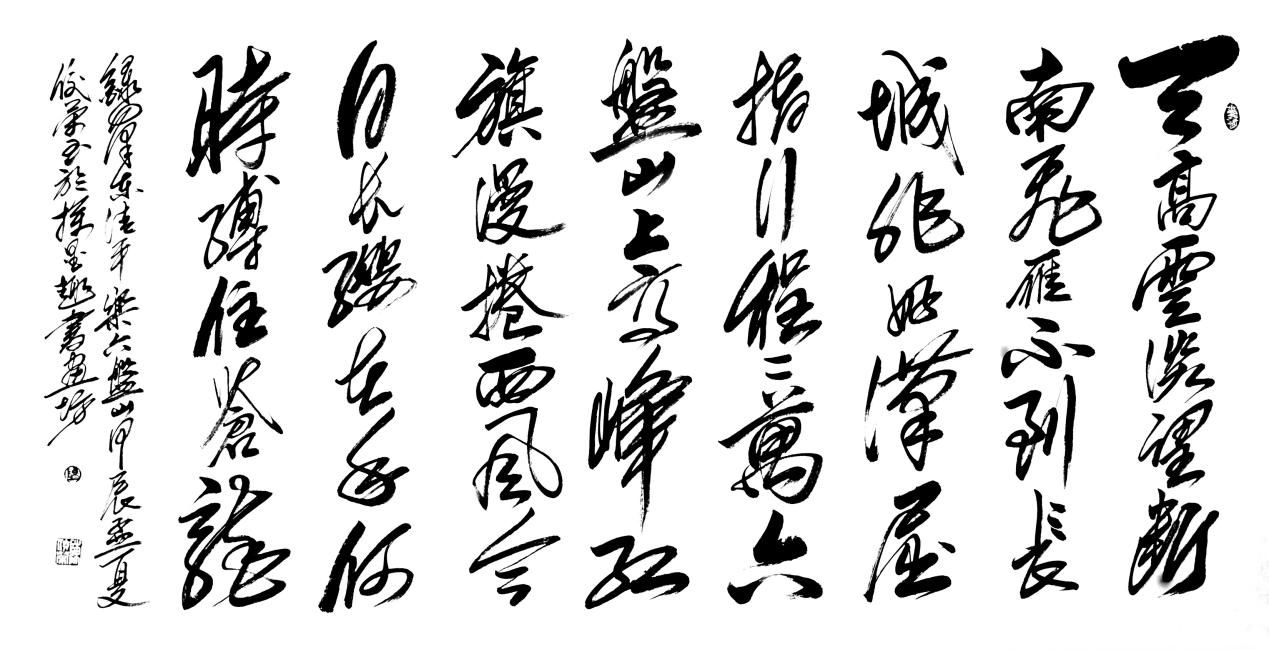 天高雲淡望斷
南飛雁不到長
城非好漢屈
指行程二萬六
盤山上高峰紅
旗漫捲西風今
日長纓在手何
時縛住蒼龍
錄毛澤東清平樂六盤山甲辰孟夏
於撲墨趣書畫坊